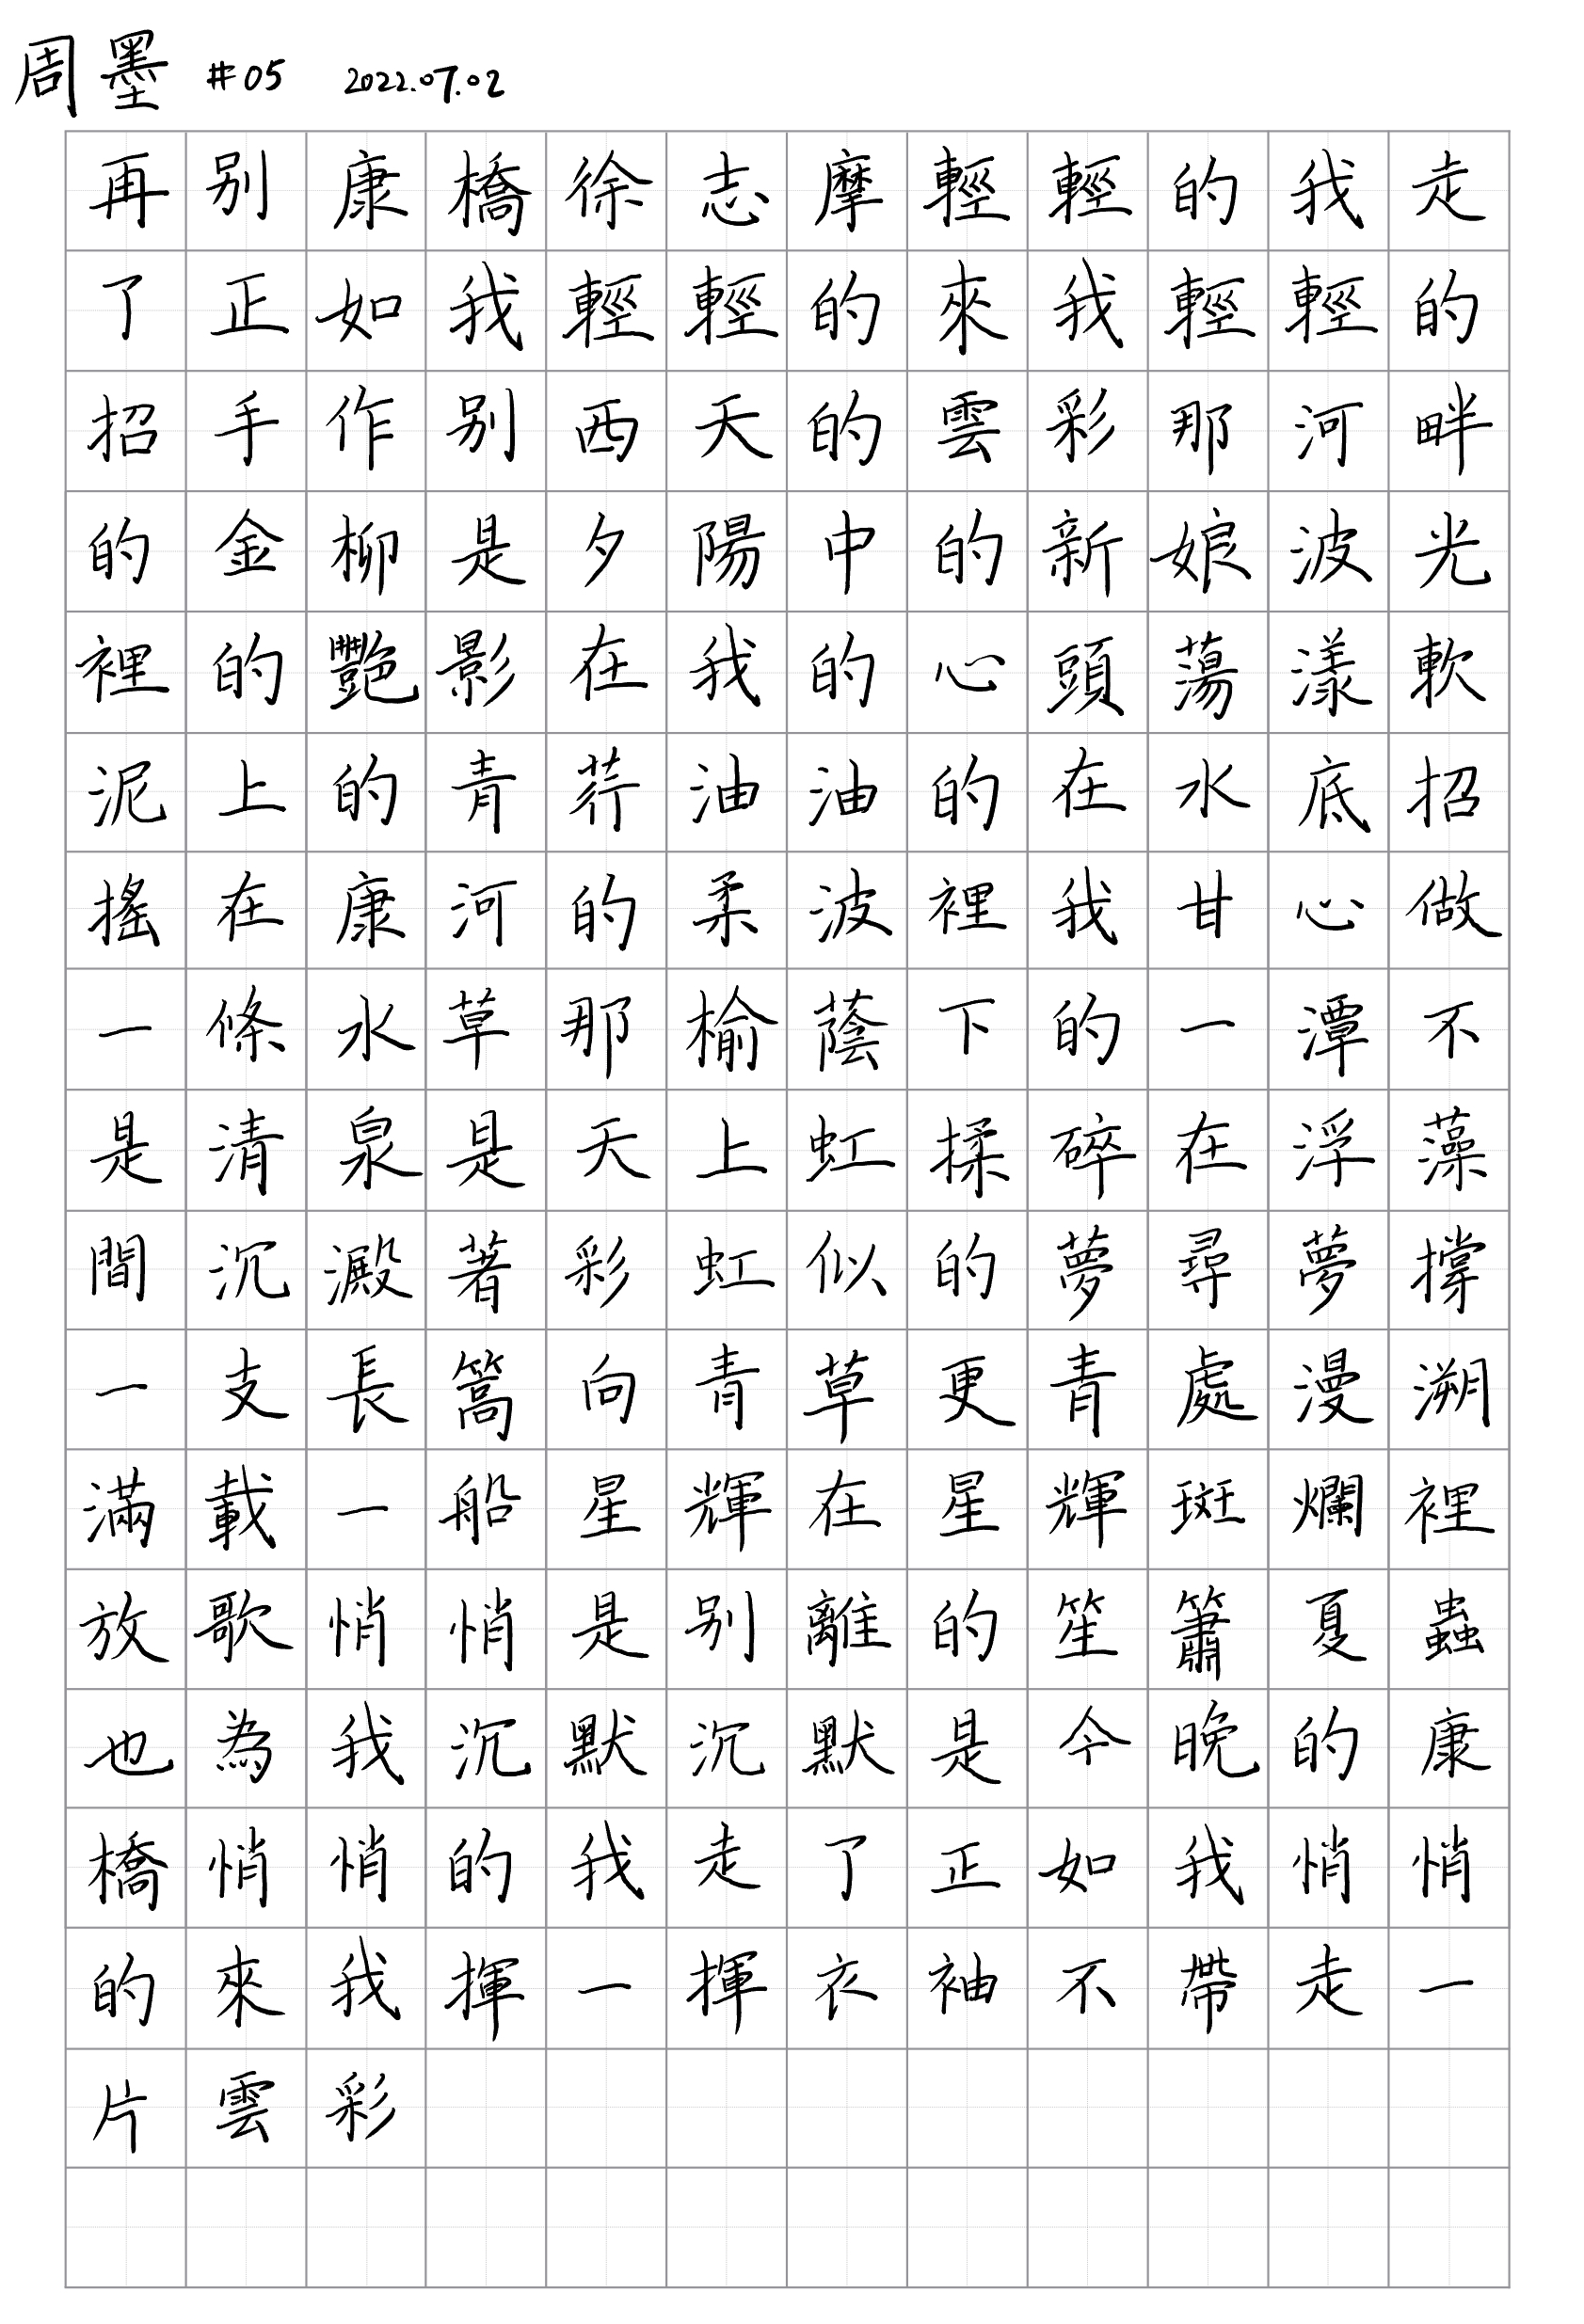 周墨 #05 2022.07.02
再別康橋徐志摩輕輕的我走
了正如我輕輕的來我輕輕的
招手作別西天的雲彩那河畔
的金柳是夕陽中的新娘波光
裡的艷影在我的心頭蕩漾軟
泥上的青荇油油的在水底招
搖在康河的柔波裡我甘心做
一條水草那榆蔭下的一潭不
是清泉是天上虹揉碎在浮藻
間沉澱著彩虹似的夢尋夢撐
一支長篙向青草更青處漫溯
滿載一船星輝在星輝斑斕裡
放歌悄悄是別離的笙簫夏蟲
也為我沉默沉默是今晚的康
橋悄悄的我走了正如我悄悄
的來我揮一揮衣袖不帶走一
片雲彩